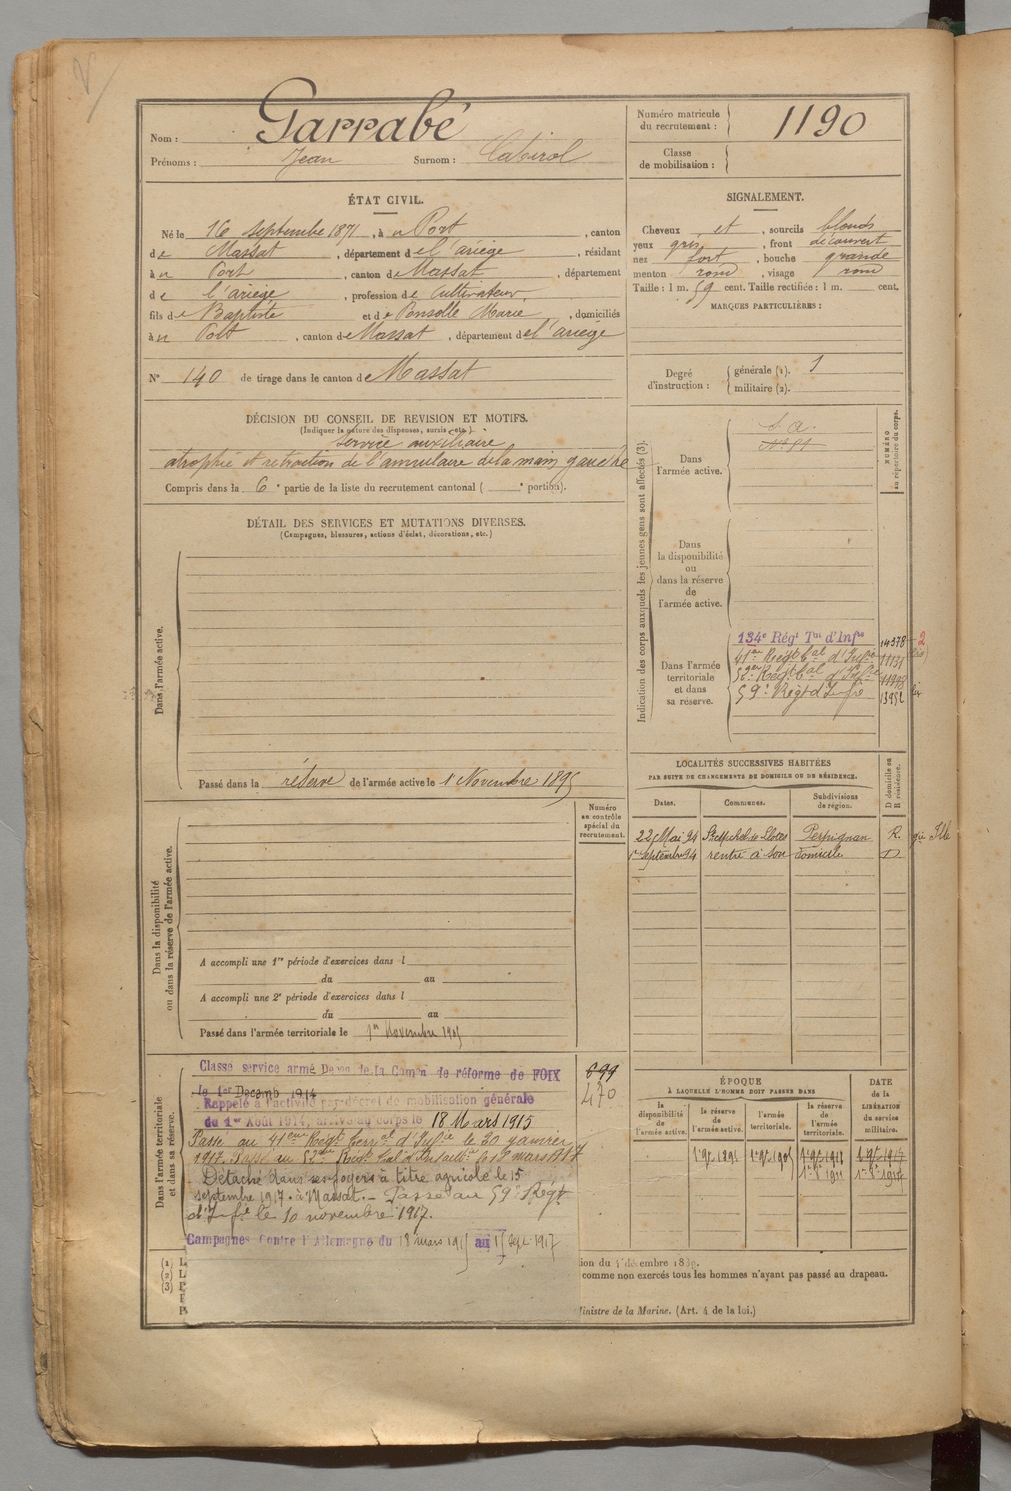 Nom : Garrabé
Prénoms : Jean Surnom : Cabirol
Numéro matricule du recrutement : 1190
Classe de mobilisation :
ÉTAT CIVIL.
Né le 16 septembre 1871, à Port, canton
de Massat, département de l'ariège, résidant
à Port, canton de Massat, département
de l'ariège, profession de cultivateur,
fils de Baptiste et de Ponsolle Marie, domiciliés
à Port, canton de Massat, département de l'ariège
N° 140 de tirage dans le canton de Massat
SIGNALEMENT.
Cheveux et, sourcils blonds
yeux gris, front découvert
nez fort, bouche grande
menton rond, visage rond
Taille : 1 m. 59 cent. Taille rectifiée : 1 m. cent.
MARQUES PARTICULIÈRES :
Degré d'instruction : générale (1). 1
militaire (2).
DÉCISION DU CONSEIL DE REVISION ET MOTIFS.
(Indiquer la nature des dispenses, sursis, etc.)
service auxiliaire
atrophie et rétraction de l'annulaire de la main gauche
Compris dans la 6e partie de la liste du recrutement cantonal ( e portion).
DÉTAIL DES SERVICES ET MUTATIONS DIVERSES.
(Campagnes, blessures, actions d'éclat, décorations, etc.)
Dans l'armée active.
Passé dans la réserve de l'armée active le 1 Novembre 1895
Indication des corps auxquels les jeunes gens sont affectés (3).
NUMÉRO au répertoire du corps.
Dans l'armée active.
S. a.
Dans la disponibilité ou dans la réserve de l'armée active.
Dans l'armée territoriale et dans sa réserve.
134e Régt Tal d'Infie 14378
41em Régt tal d'Infie 11131
52em Régt tal d'Infie 11998
59e Régt d'Infie 13952
LOCALITÉS SUCCESSIVES HABITÉES
PAR SUITE DE CHANGEMENTS DE DOMICILE OU DE RÉSIDENCE.
Dates. Communes. Subdivisions de région. D domicile ou R résidence.
22 Mai 94 St Michel de Llotes Perpignan R.
1er septembre 94 rentré à son domicile D
Numéro au contrôle spécial du recrutement.
Dans la disponibilité ou dans la réserve de l'armée active.
A accompli une 1re période d'exercices dans l
du au
A accompli une 2e période d'exercices dans l
du au
Passé dans l'armée territoriale le 1er Novembre 1905
Dans l'armée territoriale et dans sa réserve.
Classé service armé Décon de la Comon de réforme de FOIX
le 1er Decemb 1914
Rappelé à l'activité par décret de mobilisation générale
du 1er Août 1914, arrivé au corps le 18 Mars 1915
Passé au 41eme Régt Terral d'Infie le 20 janvier
1917. Passé au 52eme Régt tal d'Infantie le 12 mars 1917
Détaché dans ses foyers à titre agricole le 15
septembre 1917 à Massat. – Passé au 59e Régt
d'Infie le 10 novembre 1917.
Campagnes Contre l'Allemagne du 18 mars 1915 au 15 Sept. 1917
699
470
ÉPOQUE À LAQUELLE L'HOMME DOIT PASSER DANS
la disponibilité de l'armée active. la réserve de l'armée active. l'armée territoriale. la réserve de l'armée territoriale.
DATE de la LIBÉRATION du service militaire.
1er 9bre 1895 1er 9bre 1905
(1) L
(2) L
(3) P
ion du 4 décembre 1889.
comme non exercés tous les hommes n'ayant pas passé au drapeau.
Ministre de la Marine. (Art. 4 de la loi.)